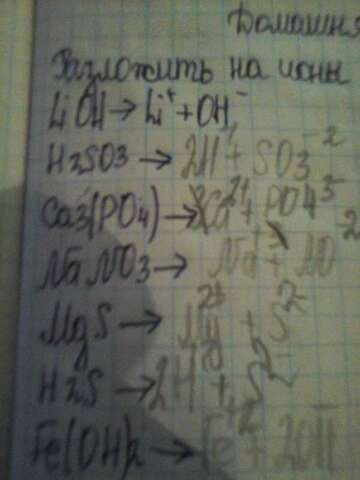 Домашня
Разложить на ионы
LiOH → Li⁺ + OH⁻
H2SO3 → 2H⁺ + SO3⁻²
Ca3(PO4) → Ca²⁺ + PO4³⁻
NaNO3 → Na⁺ + NO⁻²
MgS → Mg²⁺ + S²⁻
H2S → 2H + S²⁻
Fe(OH)2 → Fe⁺² + 2OH